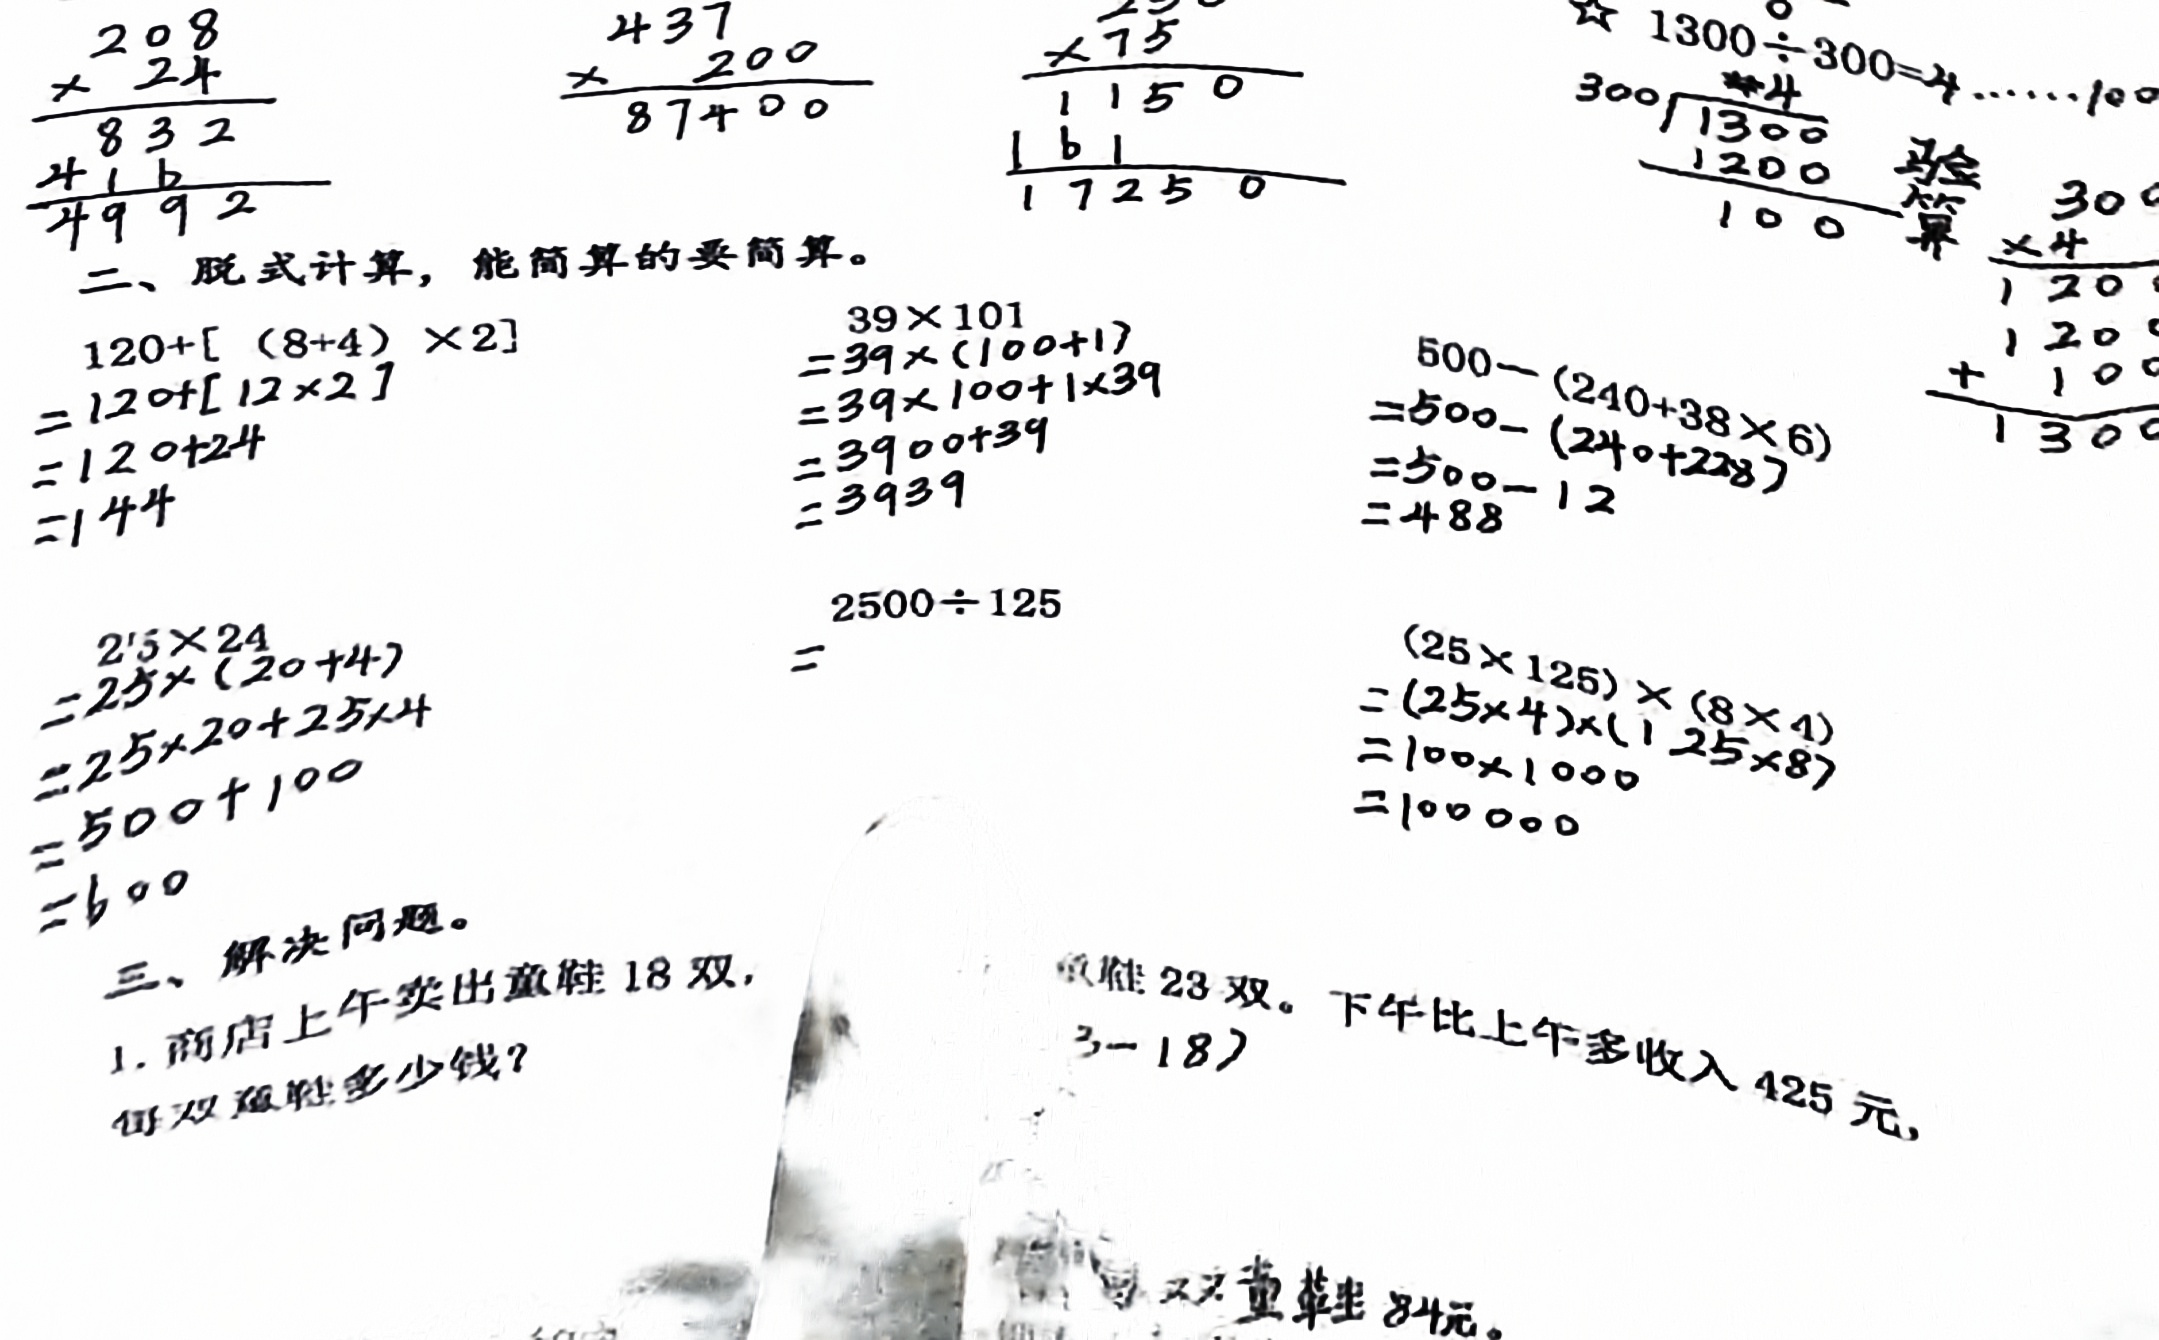 208
× 24
832
416
4992
437
× 200
87400
× 75
1150
161
17250
☆ 1300÷300=4……100
4
300 1300
1200
100
验算
300
×4
1200
1200
+ 100
1300
二、脱式计算，能简算的要简算。
120+[（8+4）×2]
=120+[12×2]
=120+24
=144
39×101
=39×(100+1)
=39×100+1×39
=3900+39
=3939
500－(240+38×6)
=500－(240+228)
=500－12
=488
25×24
=25×(20+4)
=25×20+25×4
=500+100
=600
2500÷125
=
(25×125)×(8×4)
=(25×4)×(125×8)
=100×1000
=100000
三、解决问题。
1. 商店上午卖出童鞋 18 双，
鞋 23 双。下午比上午多收入 425 元，
每双童鞋多少钱？
－18)
双童鞋 84元。